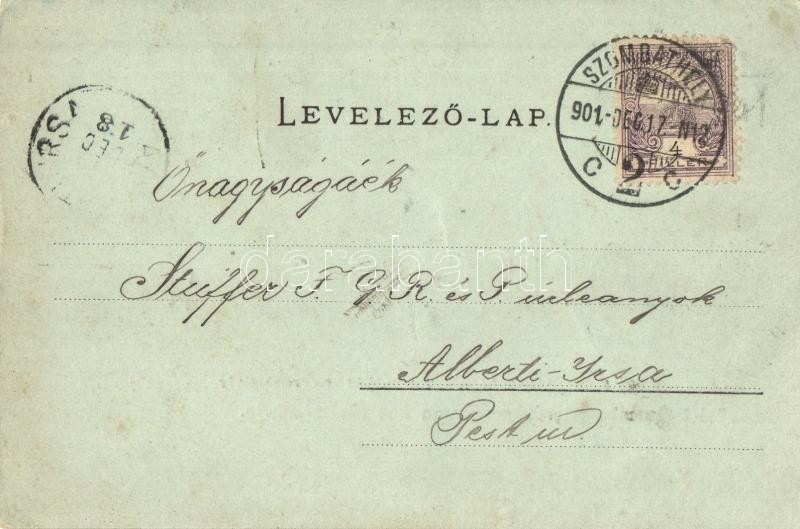 LEVELEZŐ-LAP.
SZOMBATHELY
901.-DEC.17.-N12
C 2 C
4
FILLÉR
IRSA
DEC
18
Őnagyságáék
Stuffer F. G. R. és P. úrleanyok
Alberti-Irsa
Pest m.
darabanth